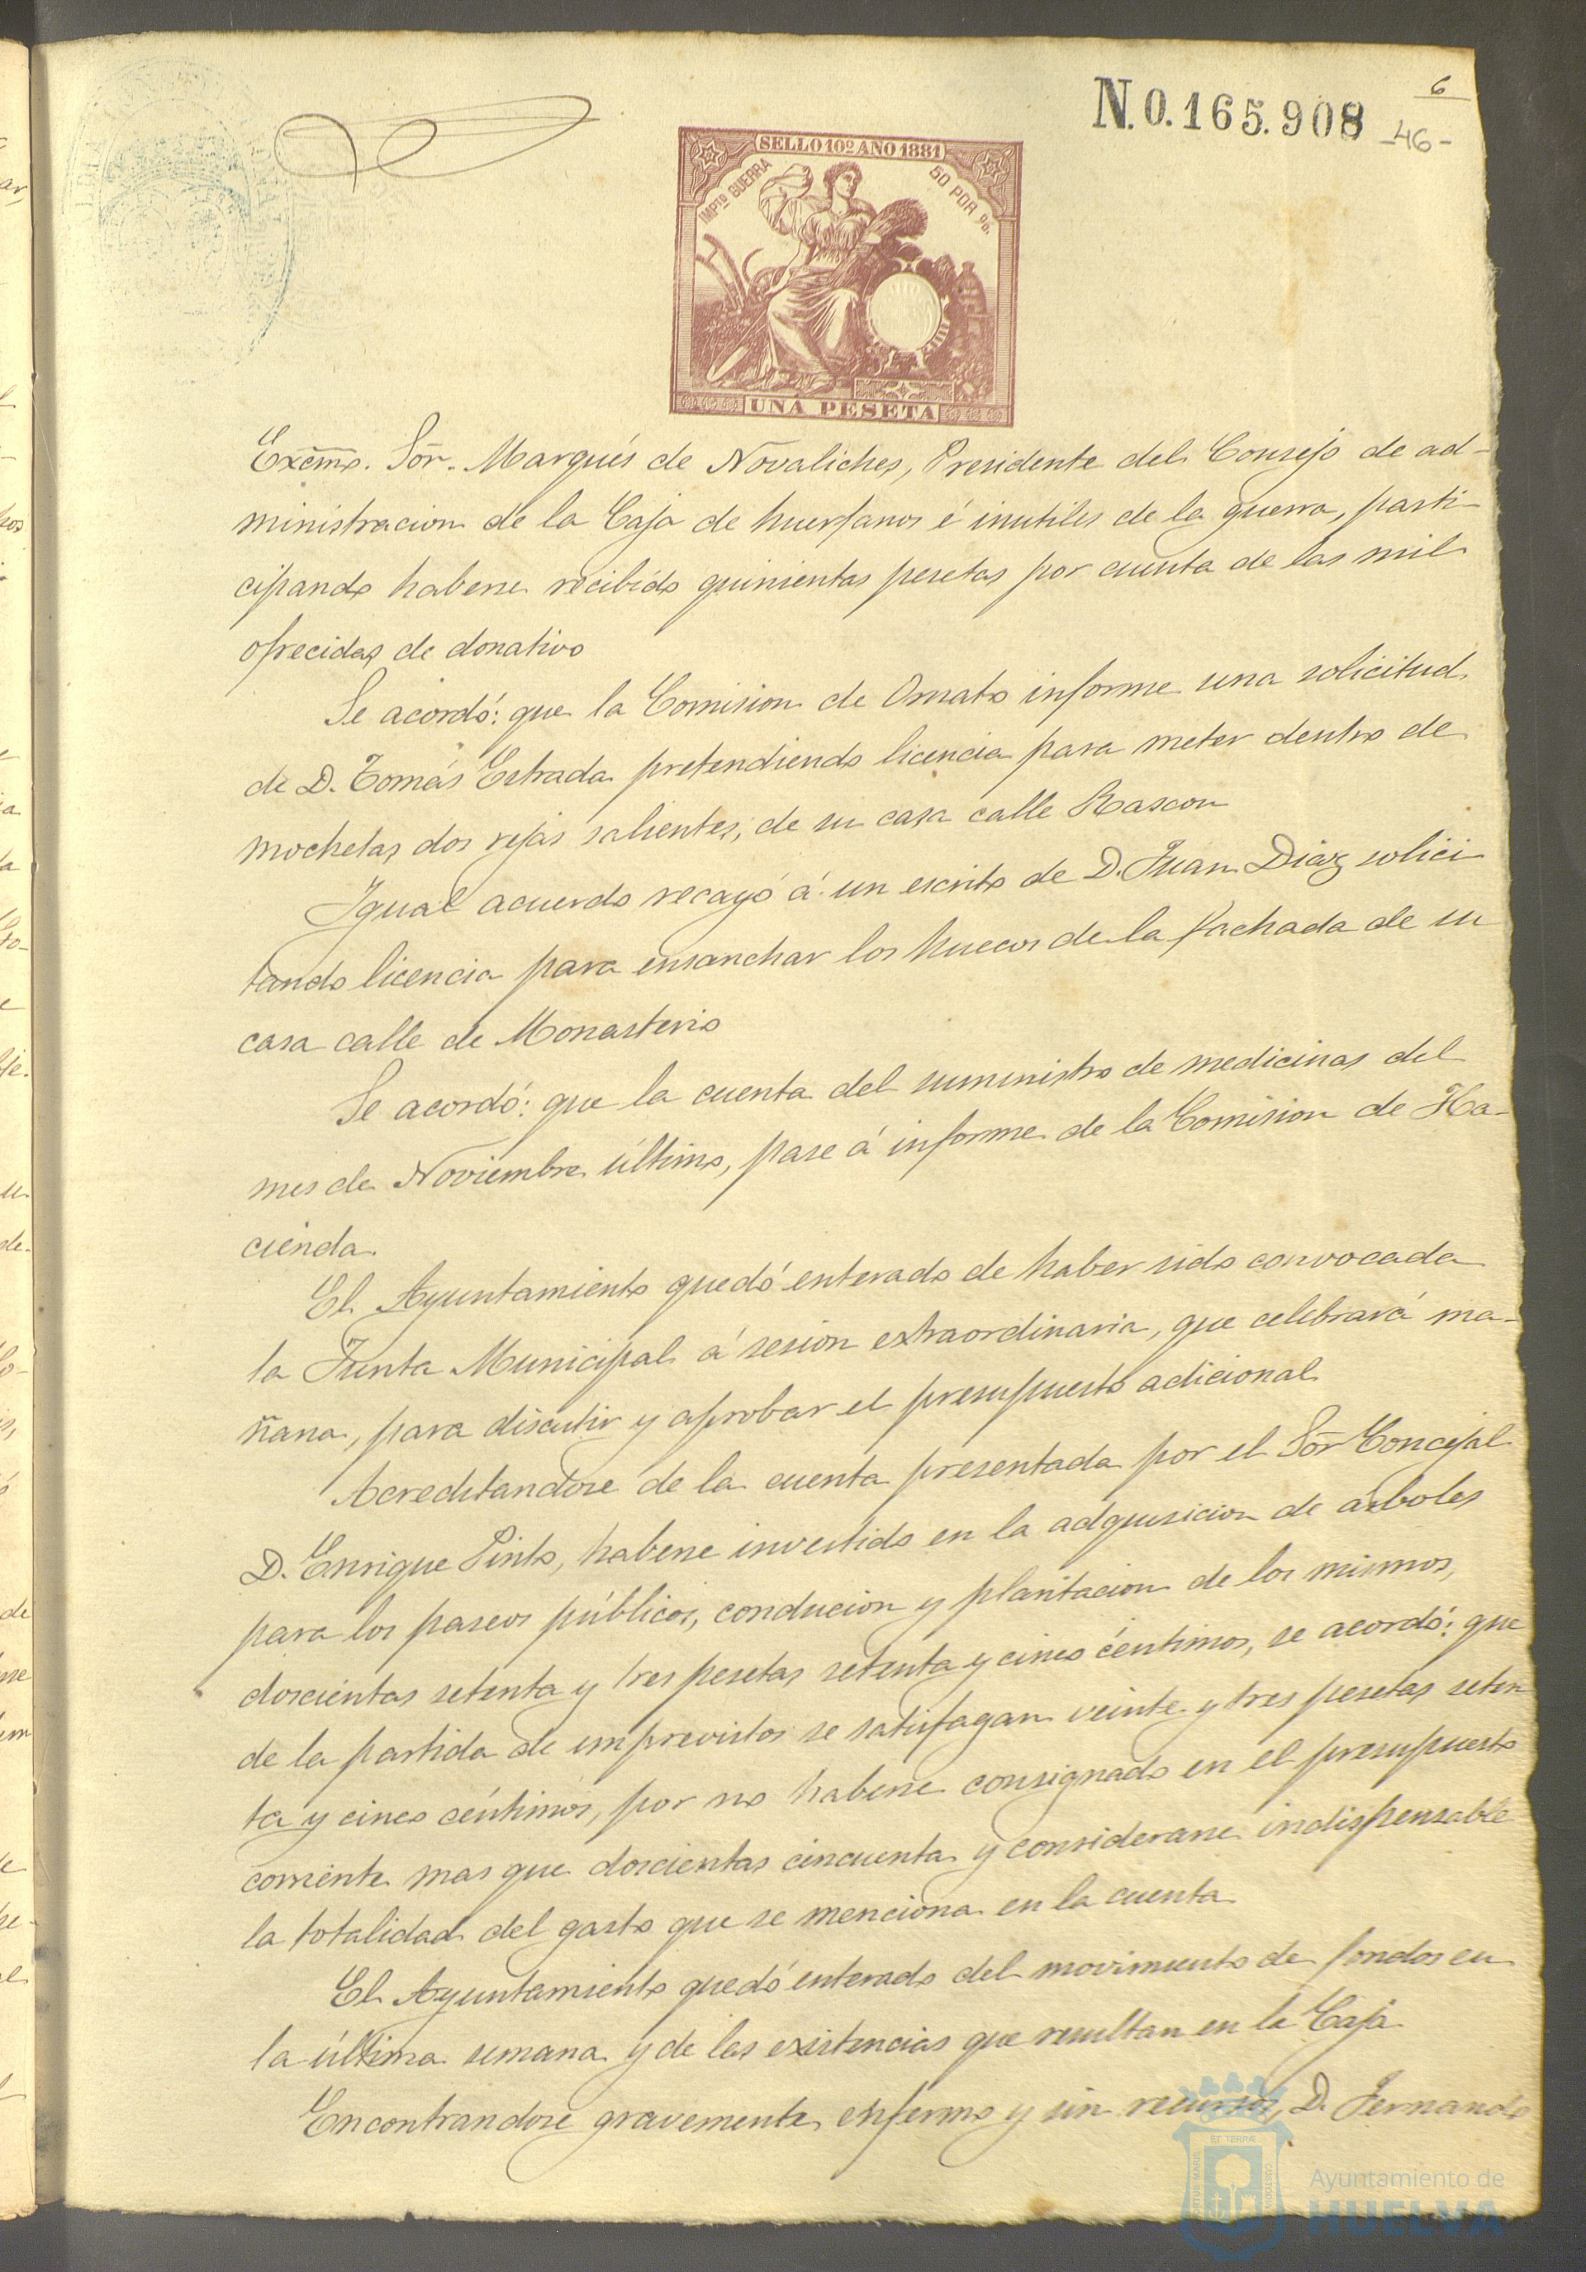 6
N.0.165.908 -46-
SELLO 10º AÑO 1881
IMPTO GUERRA 50 POR %.
UNA PESETA
Excmo. Sōr. Marqués de Novaliches, Presidente del Consejo de ad-
ministracion de la Caja de huerfanos é inutiles de la guerra, parti-
cipando haberse recibido quinientas pesetas por cuenta de las mil
ofrecidas de donativo
Se acordó: que la Comision de Ornato informe una solicitud
de D. Tomás Estrada pretendiendo licencia para meter dentro de
mochetas dos rejas salientes, de su casa calle Rascon
Igual acuerdo recayó á un escrito de D. Juan Diaz solici-
tando licencia para ensanchar los huecos de la fachada de su
casa calle de Monasterio
Se acordó: que la cuenta del suministro de medicinas del
mes de Noviembre último, pase á informe de la Comision de Ha-
cienda.
El Ayuntamiento quedó enterado de haber sido convocada
la Junta Municipal á sesion extraordinaria, que celebrará ma-
ñana, para discutir y aprobar el presupuesto adicional
Acreditandose de la cuenta presentada por el Sōr Concejal
D. Enrique Pinto, haberse invertido en la adquisicion de árboles
para los paseos públicos, conducion y plantacion de los mismos,
doscientas setenta y tres pesetas setenta y cinco céntimos, se acordó: que
de la partida de imprevistos se satisfagan veinte y tres pesetas seten
ta y cinco céntimos, por no haberse consignado en el presupuesto
corriente mas que doscientas cincuenta y considerarse indispensable
la totalidad del gasto que se menciona en la cuenta
El Ayuntamiento quedó enterado del movimiento de fondos en
la última semana y de las existencias que resultan en la Caja
Encontrandose gravemente enfermo y sin recursos, D. Fernando
Ayuntamiento de
HUELVA